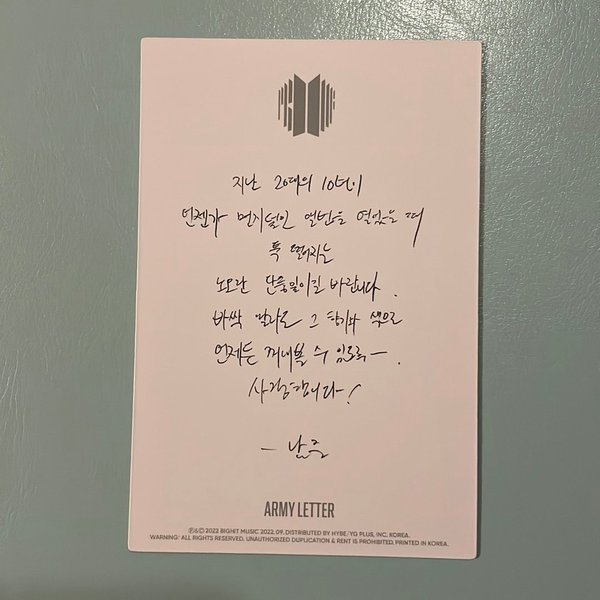 PROOF
지난 20대의 10년이
언젠가 먼지덮인 앨범을 열었을 때
툭 떨어지는
노오란 단풍잎이길 바랍니다.
바싹 말라도 그 향기와 색으로
언제든 꺼내볼 수 있도록—.
사랑합니다!
— 남준
ARMY LETTER
Ⓟ&Ⓒ 2022 BIGHIT MUSIC 2022. 09. DISTRIBUTED BY HYBE/YG PLUS, INC. KOREA.
WARNING: ALL RIGHTS RESERVED. UNAUTHORIZED DUPLICATION & RENT IS PROHIBITED. PRINTED IN KOREA.